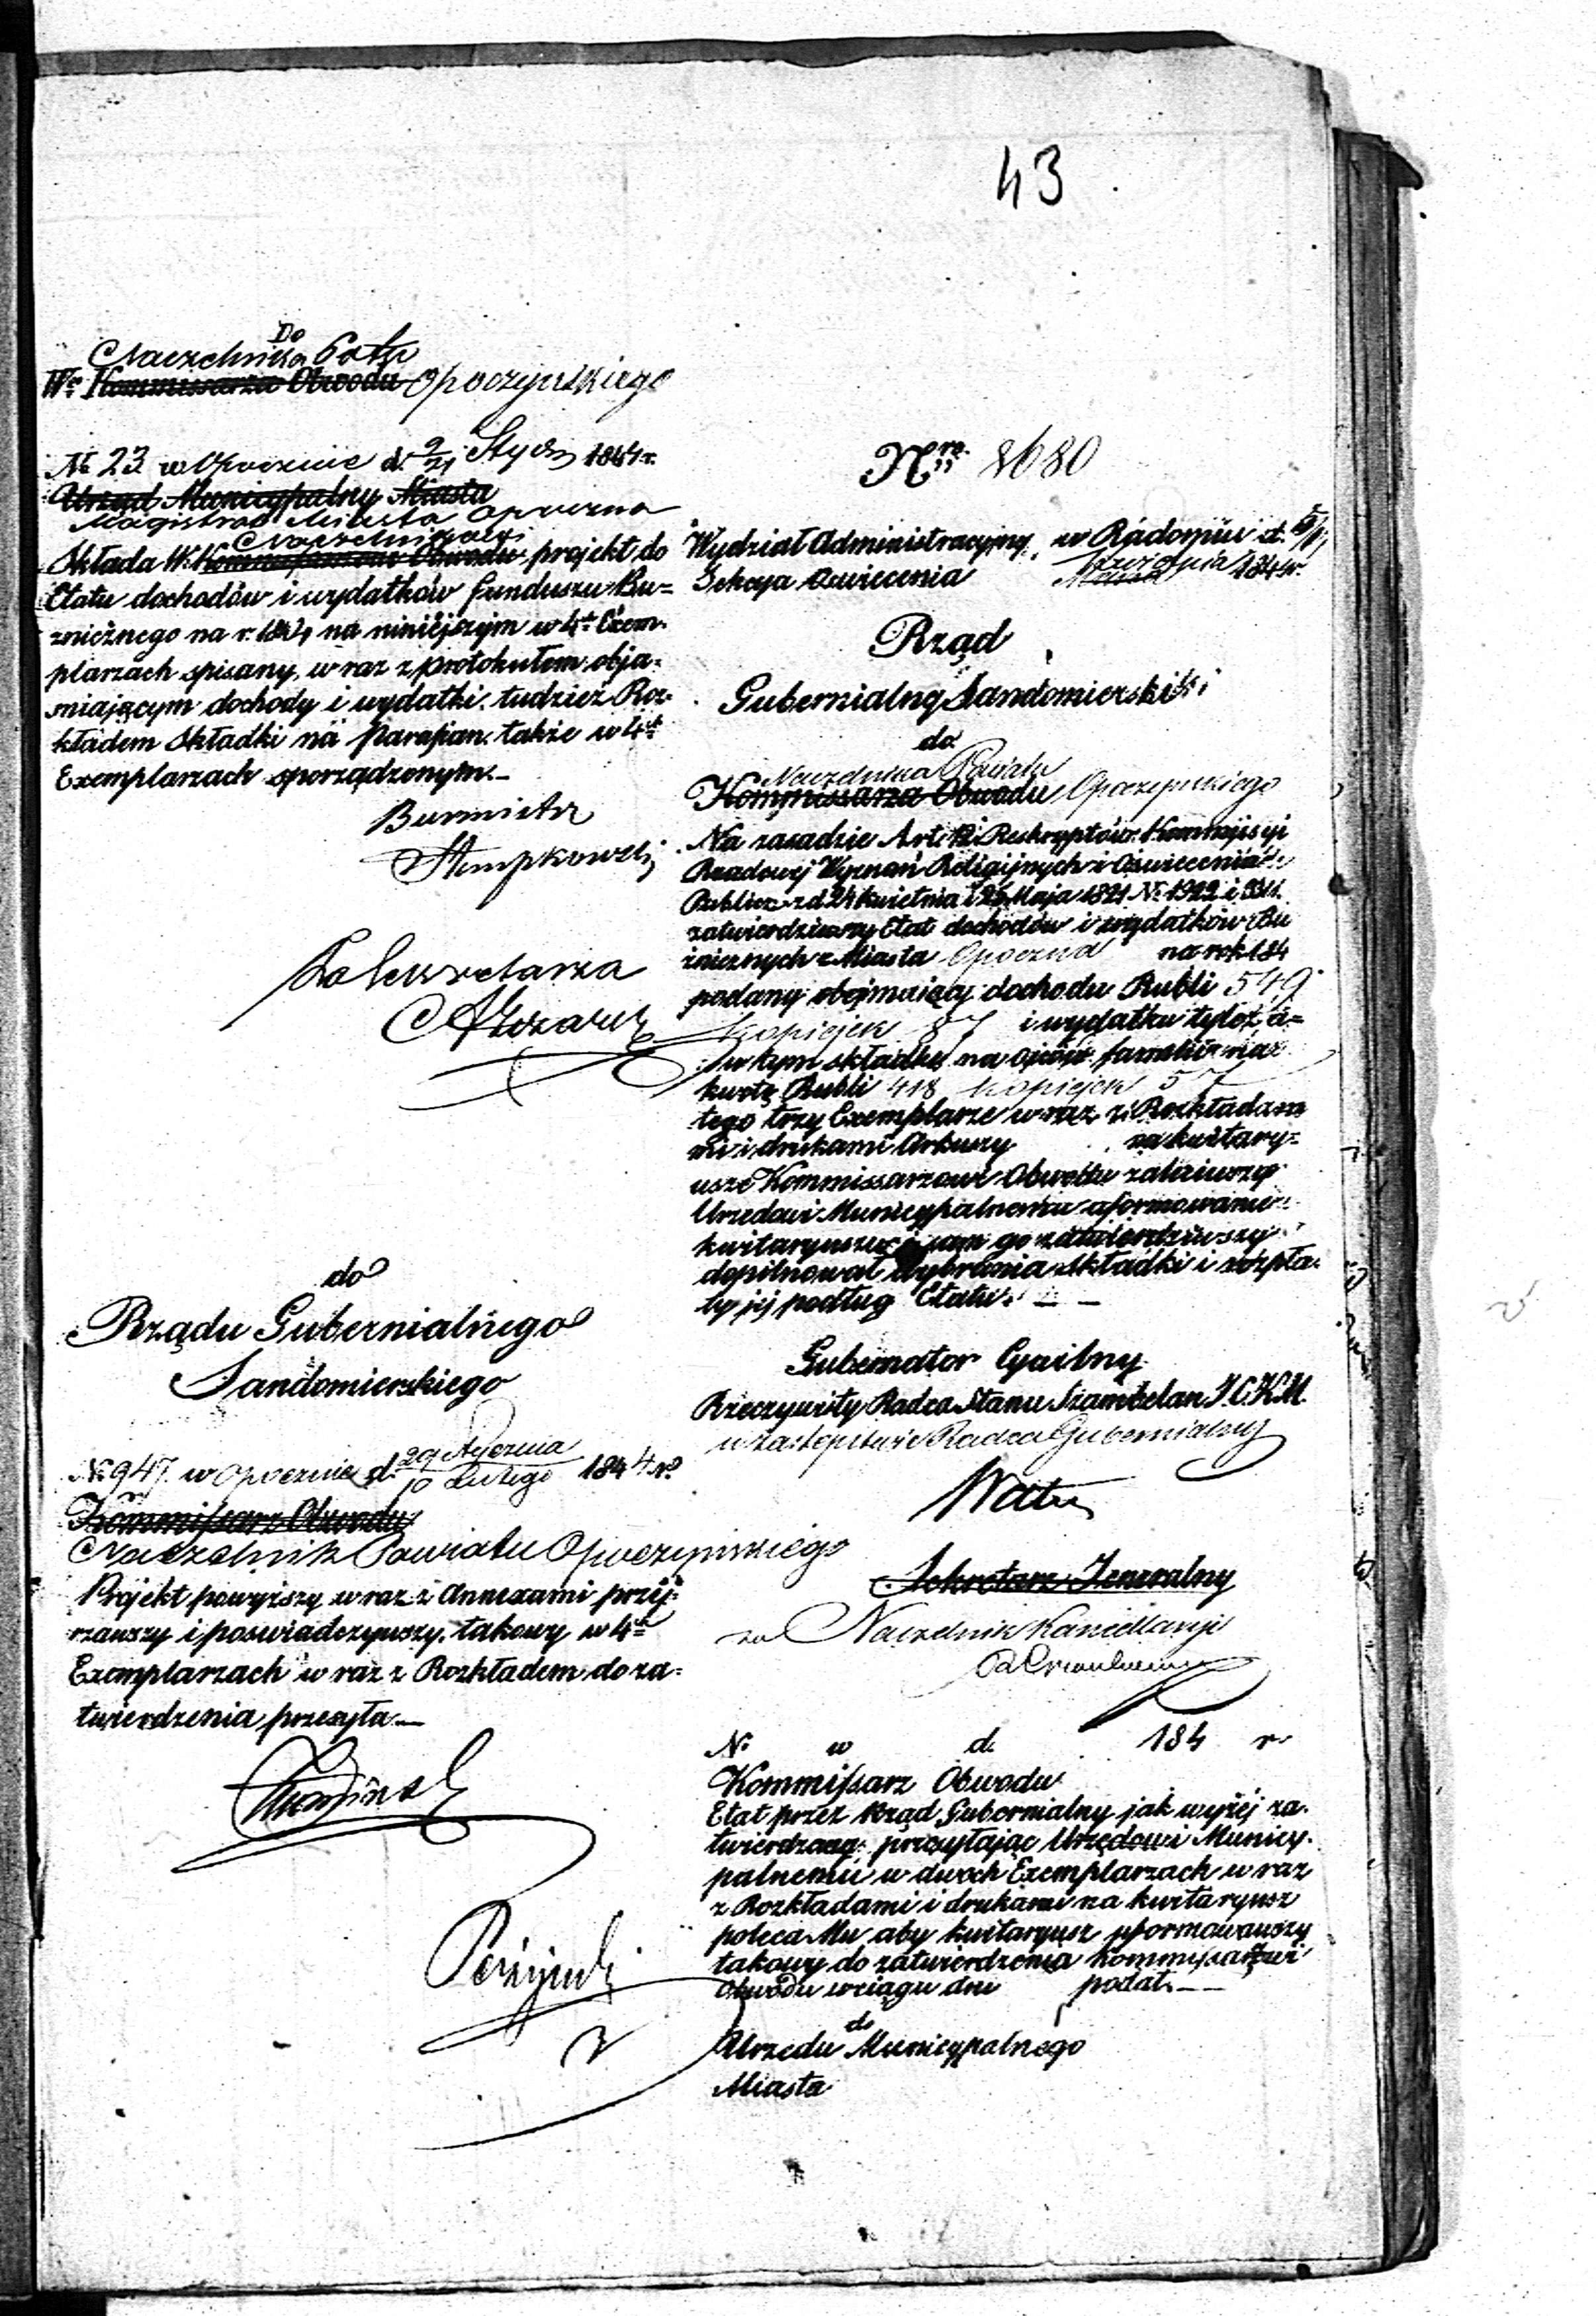 43
Do
Naczelnika Pottu
Wo Kommissarza Obwodu Opoczyńskiego
№ 23 w Opocznie d. 9/21 Stycz 1844 r.
Urząd Municypalny Miasta
Magistrat Miasta Opoczna
Naczelnikowi
Składa W. Obwodu projekt do
Etatu dochodów i wydatków funduszu Bu=
znicznego na r. 1844 na niniejszym w 4ch Exem-
plarzach spisany, wraz z protokułem obja-
sniającym dochody i wydatki, tudzież Roz-
kładem składki na parafian także w 4ch
Exemplarzach sporządzonym.—
Burmistrz
Stempkowski
Za Sekretarza
do
Rządu Gubernialnego
Sandomierskiego
№ 947. w Opocznie d. 29 Stycznia / 10 Lutego 1844 r.
Kommissarz Obwodu
Naczelnik Powiatu Opoczyńskiego
Projekt powyższy wraz z Annexami przej-
rzawszy i poswiadczywszy, takowy w 4ch
Exemplarzach w raz z Rozkładem do za=
twierdzenia przesyła.—
Nro 8680
Wydział Administracyjny, w Radomiu d.
Sekcya Oswiecenia 1844 r.
Rząd
Gubernialny Sandomierski
do
Naczelnika Powiatu
Kommissarza Obwodu Opoczyńskiego
Na zasadzie Art. 12 i Reskryptów Kommissyi
Rządowej Wyznań Religijnych i Oswiecenia
Publicz: z d. 24 Kwietnia i 25 Maja 1821 № 1922 i
zatwierdziwszy Etat dochodów i wydatków Bu
zniczných z Miasta Opoczna na rok 184
podany obejmujący dochodu Rubli 549
Kopiejek 87 i wydatku tyleż a=
w tym składkę na ojców familii na
kwotę Rubli 418 Kopiejek 57
tego trzy Exemplarze wraz z Rozkłada
mi i drukami Arkuszy na kwitary=
usze Kommissarzowi Obwodu
Urzędowi Municypalnemu uformowanie
kwitaryuszu i sam go zatwierdziwszy
dopilnował wybrania składki i rozpła-
ty jej podług Etatu. — —
Gubernator Cywilny
Rzeczywisty Radca Stanu Szambelan J.C.K.M.
w zastępstwie Radca Gubernialny
Sekretarz Jeneralny
za Naczelnik Kancellaryi
№ w d. 184 r.
Kommissarz Obwodu
Etat przez Rząd Gubernialny jak wyżej za-
twierdzony przesyłając Urzędowi Municy-
palnemu w dwóch Exemplarzach w raz
z Rozkładami i drukami na kwitaryusz
poleca Mu aby kwitaryusz uformowawszy
takowy do zatwierdzenia Kommissarzowi
Obwodu w ciągu dni podał.— —
do
Urzędu Municypalnego
Miasta